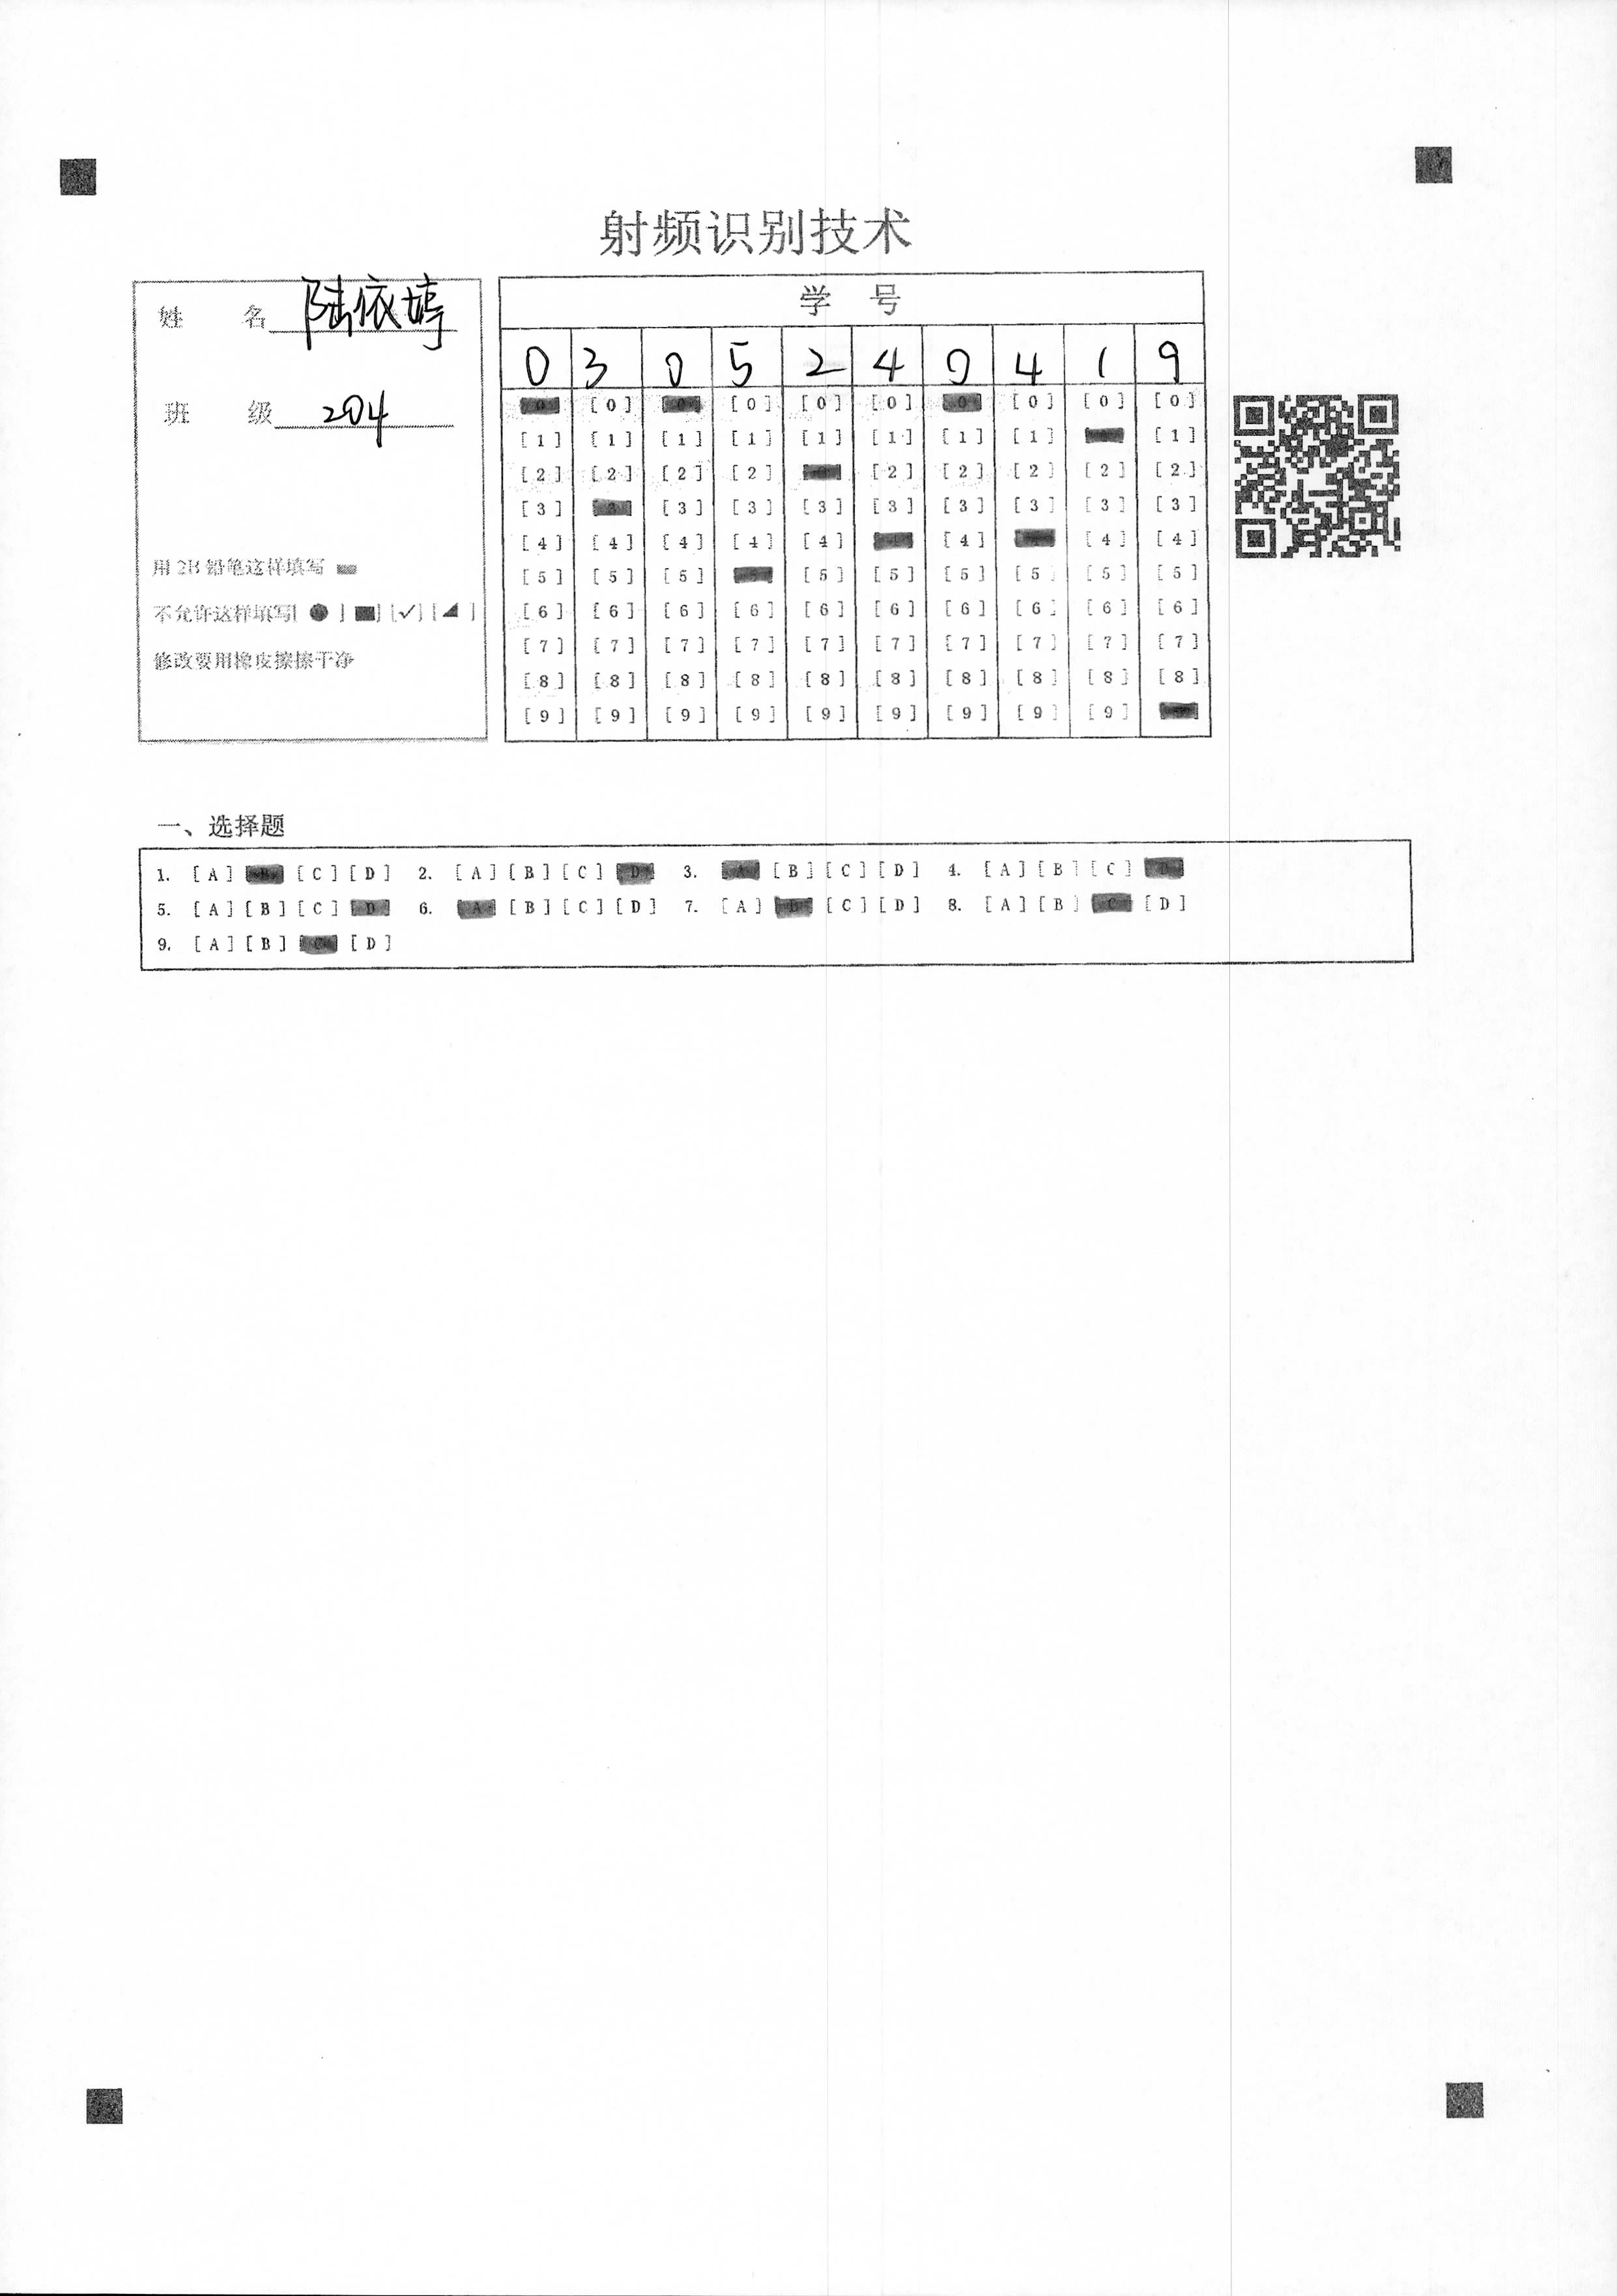 射频识别技术
姓 名 陆依婷
班 级 204
用 2B 铅笔这样填写
不允许这样填写[ ● ] [■] [✓] [◢ ]
修改要用橡皮擦擦干净
学 号
0 3 0 5 2 4 0 4 1 9
[0] [0] [0] [0] [0] [0] [0] [0] [0] [0]
[1] [1] [1] [1] [1] [1] [1] [1] [1]
[2] [2] [2] [2] [2] [2] [2] [2] [2]
[3] [3] [3] [3] [3] [3] [3] [3] [3] [3]
[4] [4] [4] [4] [4] [4] [4] [4]
[5] [5] [5] [5] [5] [5] [5] [5] [5]
[6] [6] [6] [6] [6] [6] [6] [6] [6] [6]
[7] [7] [7] [7] [7] [7] [7] [7] [7] [7]
[8] [8] [8] [8] [8] [8] [8] [8] [8] [8]
[9] [9] [9] [9] [9] [9] [9] [9] [9]
一、选择题
1. [A] [B] [C] [D] 2. [A] [B] [C] [D] 3. [A] [B] [C] [D] 4. [A] [B] [C] [D]
5. [A] [B] [C] [D] 6. [A] [B] [C] [D] 7. [A] [B] [C] [D] 8. [A] [B] [C] [D]
9. [A] [B] [C] [D]